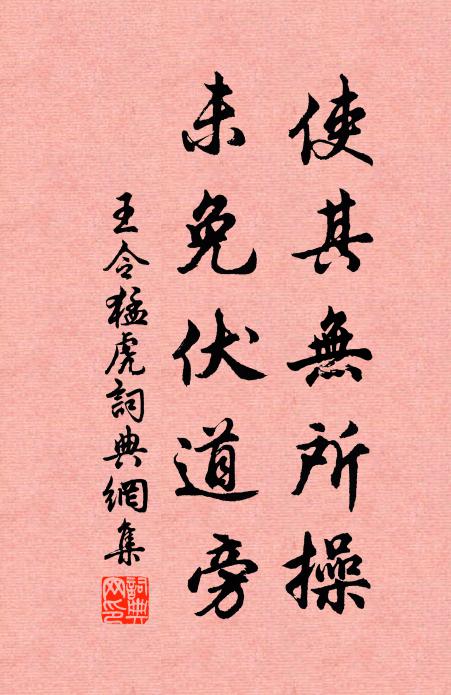 使其無所操
未免伏道旁
王令猛虎詞典網集
詞典
网印